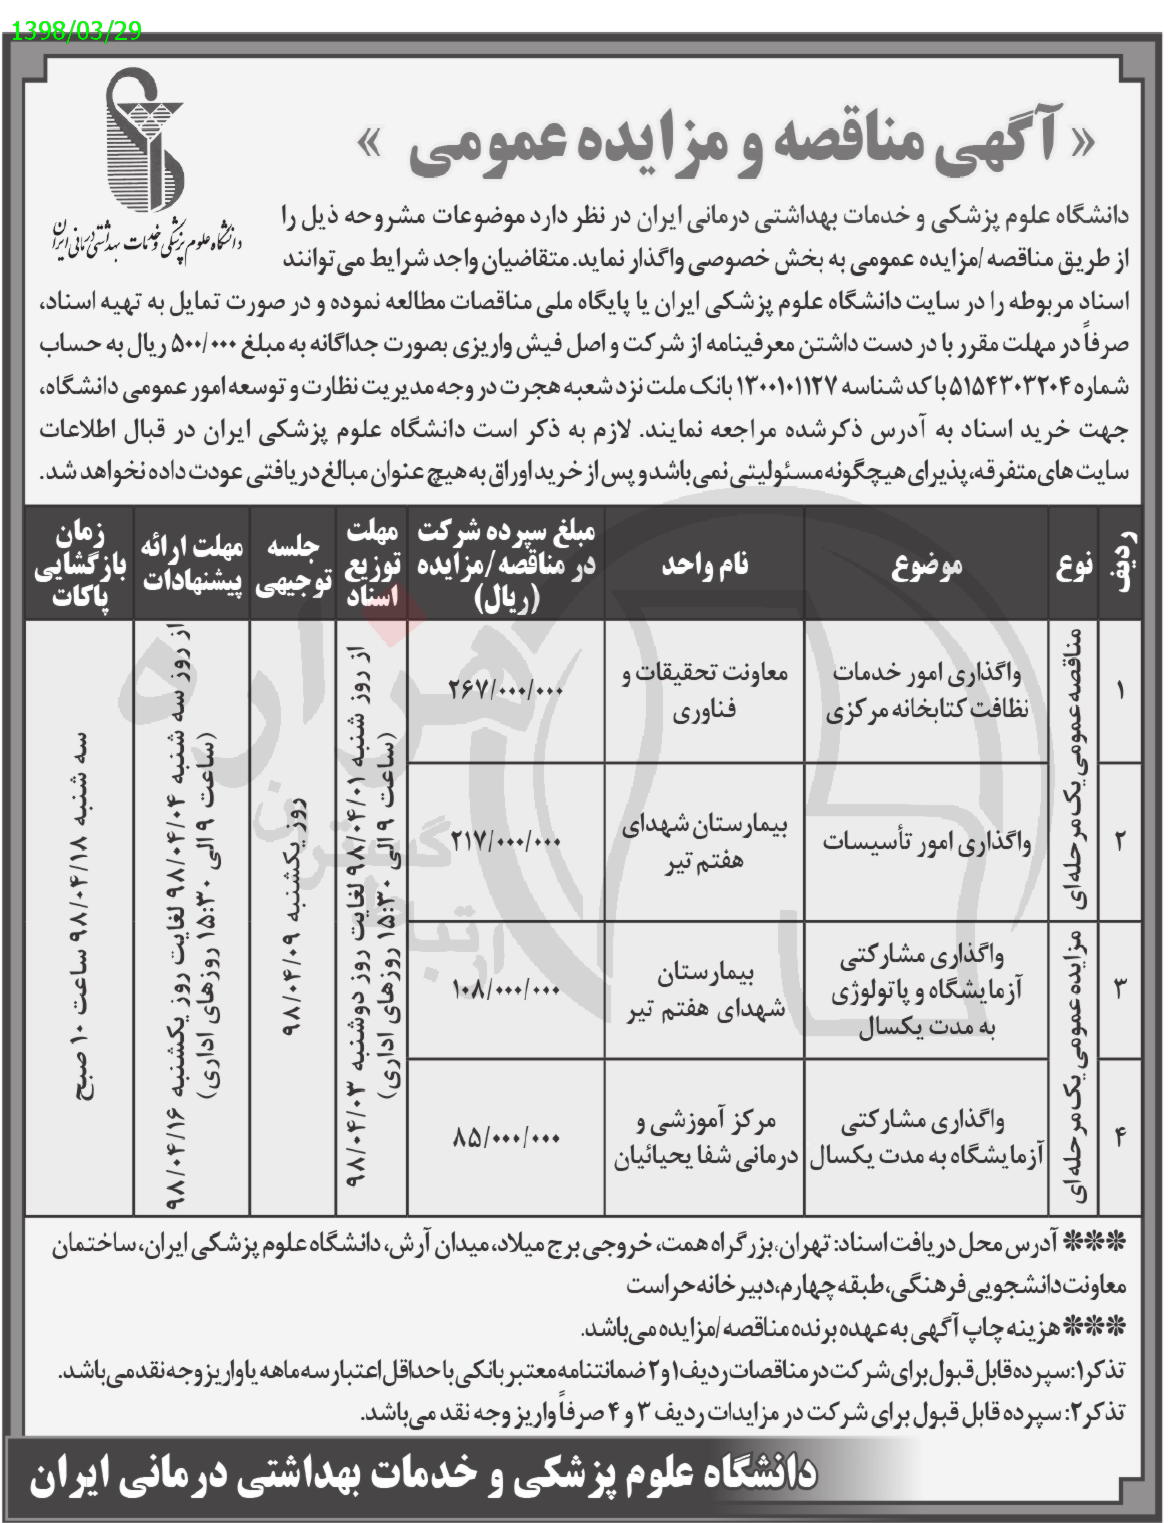 1398/03/29
« آگهی مناقصه و مزایده عمومی »
دانشگاه علوم پزشکی و خدمات بهداشتی درمانی ایران
دانشگاه علوم پزشکی و خدمات بهداشتی درمانی ایران در نظر دارد موضوعات مشروحه ذیل را
از طریق مناقصه /مزایده عمومی به بخش خصوصی واگذار نماید. متقاضیان واجد شرایط می توانند
اسناد مربوطه را در سایت دانشگاه علوم پزشکی ایران یا پایگاه ملی مناقصات مطالعه نموده و در صورت تمایل به تهیه اسناد،
صرفاً در مهلت مقرر با در دست داشتن معرفینامه از شرکت و اصل فیش واریزی بصورت جداگانه به مبلغ ۵۰۰/۰۰۰ ریال به حساب
شماره ۵۱۵۴۳۰۳۲۰۴ با کد شناسه ۱۳۰۰۱۰۱۱۲۷ بانک ملت نزد شعبه هجرت در وجه مدیریت نظارت و توسعه امور عمومی دانشگاه،
جهت خرید اسناد به آدرس ذکرشده مراجعه نمایند. لازم به ذکر است دانشگاه علوم پزشکی ایران در قبال اطلاعات
سایت های متفرقه، پذیرای هیچگونه مسئولیتی نمی باشد و پس از خرید اوراق به هیچ عنوان مبالغ دریافتی عودت داده نخواهد شد.
ردیف
نوع
موضوع
نام واحد
مبلغ سپرده شرکت
در مناقصه /مزایده
(ریال)
مهلت
توزیع
اسناد
جلسه
توجیهی
مهلت ارائه
پیشنهادات
زمان
بازگشایی
پاکات
۱
مناقصه عمومی یک مرحله ای
واگذاری امور خدمات
نظافت کتابخانه مرکزی
معاونت تحقیقات و
فناوری
۲۶۷/۰۰۰/۰۰۰
از روز شنبه ۹۸/۰۴/۰۱ لغایت روز دوشنبه ۹۸/۰۴/۰۳
(ساعت ۹ الی ۱۵:۳۰ روزهای اداری)
روز یکشنبه ۹۸/۰۴/۰۹
از روز سه شنبه ۹۸/۰۴/۰۴ لغایت روز یکشنبه ۹۸/۰۴/۱۶
(ساعت ۹ الی ۱۵:۳۰ روزهای اداری)
سه شنبه ۹۸/۰۴/۱۸ ساعت ۱۰ صبح
۲
واگذاری امور تأسیسات
بیمارستان شهدای
هفتم تیر
۲۱۷/۰۰۰/۰۰۰
۳
مزایده عمومی یک مرحله ای
واگذاری مشارکتی
آزمایشگاه و پاتولوژی
به مدت یکسال
بیمارستان
شهدای هفتم تیر
۱۰۸/۰۰۰/۰۰۰
۴
واگذاری مشارکتی
آزمایشگاه به مدت یکسال
مرکز آموزشی و
درمانی شفا یحیائیان
۸۵/۰۰۰/۰۰۰
هزاره
گسترن
ارتباط
*** آدرس محل دریافت اسناد: تهران، بزرگراه همت، خروجی برج میلاد، میدان آرش، دانشگاه علوم پزشکی ایران، ساختمان
معاونت دانشجویی فرهنگی، طبقه چهارم، دبیرخانه حراست
*** هزینه چاپ آگهی به عهده برنده مناقصه /مزایده می باشد.
تذکر۱: سپرده قابل قبول برای شرکت در مناقصات ردیف ۱ و ۲ ضمانتنامه معتبر بانکی با حداقل اعتبار سه ماهه یا واریز وجه نقد می باشد.
تذکر۲: سپرده قابل قبول برای شرکت در مزایدات ردیف ۳ و ۴ صرفاً واریز وجه نقد می باشد.
دانشگاه علوم پزشکی و خدمات بهداشتی درمانی ایران